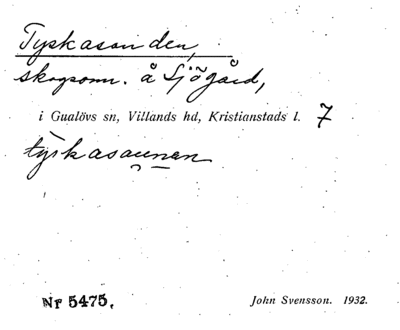 Tyskasonden,
skogsomr. å Sjögård,
i Gualövs sn, Villands hd, Kristianstads l. 7
tyskasaunen
Nr 5475.
John Svensson. 1932.